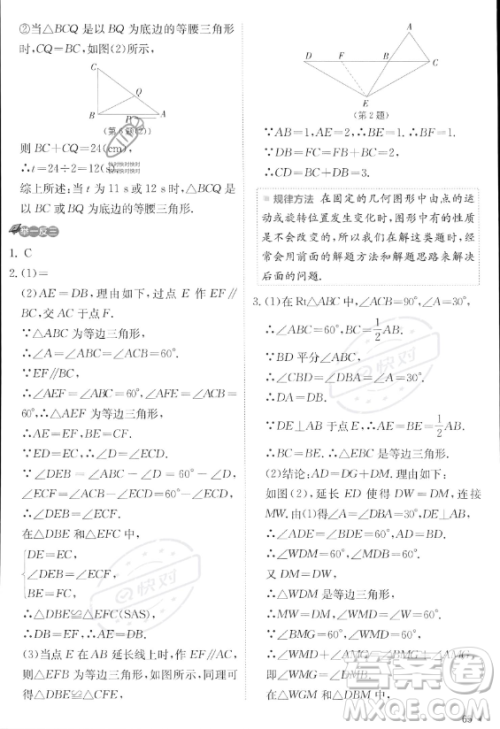 ②当△BCQ是以BQ为底边的等腰三角形
时,CQ=BC,如图(2)所示,
C
Q
B
A
则 BC+CQ=24(cm),
∴t=24÷2=12(s).
综上所述:当 t 为 11 s 或 12 s 时,△BCQ
是以 BC 或 BQ 为底边的等腰三角形.
举一反三
1. C
2. (1)=
(2)AE=DB,理由如下,过点 E 作 EF∥
BC,交 AC 于点 F.
∵△ABC 为等边三角形,
∴∠A=∠ABC=∠ACB=60°.
∵EF∥BC,
∴∠AEF=∠ABC=60°,∠AFE=∠ACB=
60°,∴△AEF 为等边三角形,
∴EF=AE=AF,∴BE=CF.
∵ED=EC,∴∠D=∠ECD.
∵∠DEB=∠ABC-∠D=60°-∠D,
∠CEF=∠ACB-∠ECB=60°-∠ECB,
∴∠DEB=∠CEF.
在△DBE 和△EFC 中,
DE=EC,
∠DEB=∠ECF,
EB=CF,
∴△DBE≌△EFC(SAS),
∴DB=EF,∴AE=DB.
(3)当点 E 在 AB 延长线上时,作 EF∥AC,
则△EFB为等边三角形,如图所示,同理可
得△DBE≌△CFE,
A
D
F
B
C
E
(第2题)
∵AB=1,AE=2,∴BE=1.
∵DB=FC=FB+BC=2,
∴CD=BC+DB=3.
规律方法 在固定的几何图形中由点的运
动或旋转位置发生变化时,图形中有的性质
可能仍然没有发生变化,所以在解这类题时,经
常会用前面的解题方法和解题思路来解决
后面的问题.
3. (1)在 Rt△ABC 中,∠ACB=90°,∠A=30°,
∴∠ABC=60°,BC=1/2AB.
∵BD 平分∠ABC,
∴∠CBD=∠DBA=∠A=30°,
∴DA=DB.
∵DE⊥AB于点E,∴AE=BE=1/2AB,
∴BC=BE,∴△EBC是等边三角形.
(2)结论:AD=DG+DM.理由:
如图(2),延长 ED 使得 DW=DM,连接
MW.由(1)得∠ABD=30°,DE⊥AB 于点E,
∴∠ADE=∠BDE=60°,AD=BD,
∴∠WDM=60°.
又 DM=DW,
∴△WDM是等边三角形,
∴MW=DM,∠W=60°.
∵∠BMG=60°,∠WMD=60°,
∴∠WMD+∠DMG=∠BMG+∠DMG,
即∠WMG=∠DMB.
在△WGM 和△DBM 中,
65
答案圈
快对